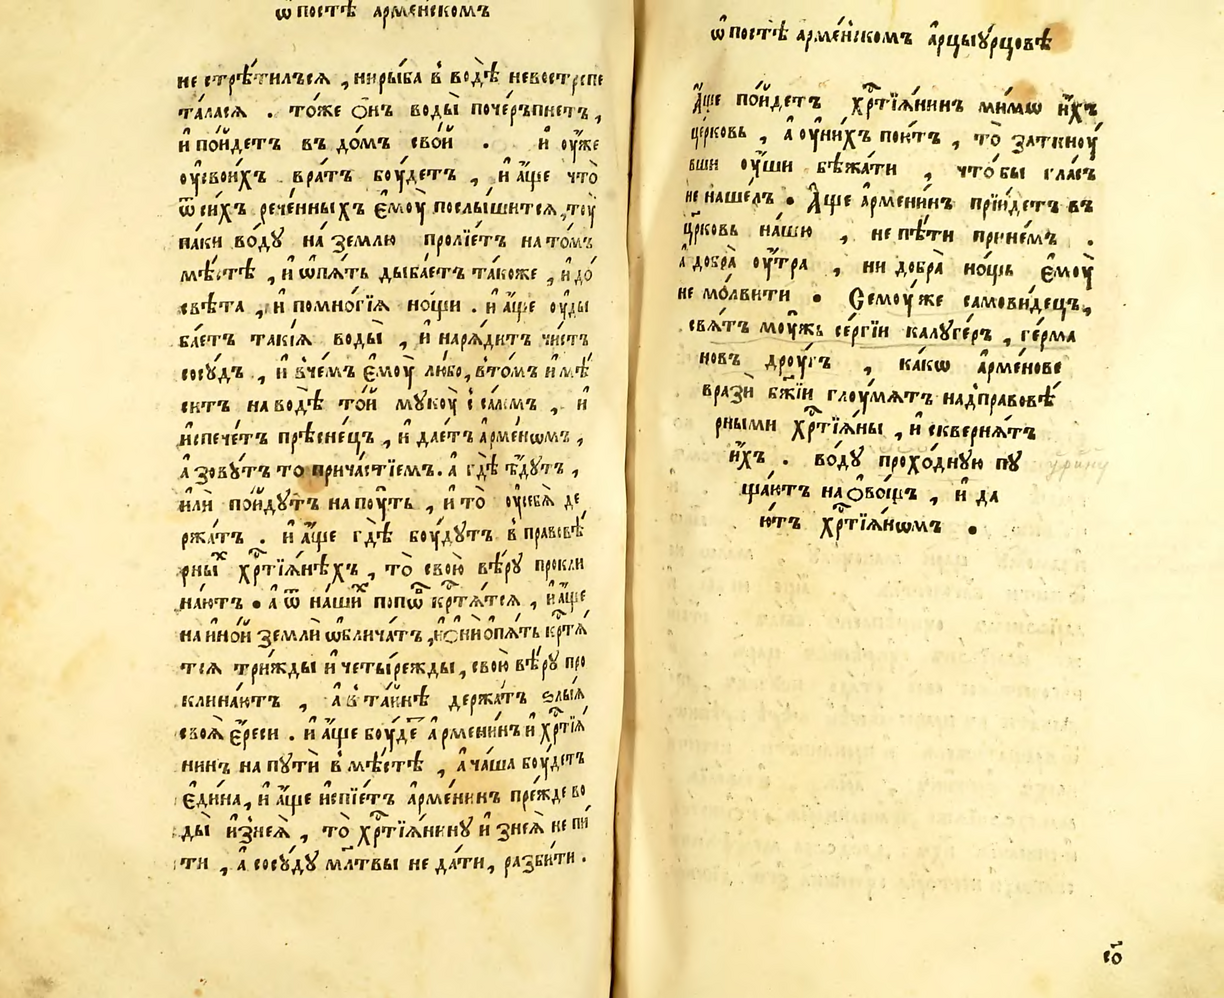 ѿ постѣ арме́нскомъ
не стрѣ́тилъсѧ , нирыба в̾ водѣ̀ невострепе
та́ласѧ . то́же ѻ́нъ воды̀ поче́рьпнетъ ,
и҆ по́йдетъ въ до́мъ сво́й . и҆ оу҆́же
оу҆свои́хъ вра́тъ боу́детъ , и҆ а҆́ще что̀
ѿ си́хъ рече́нныхъ є҆моу̀ послы́шитсѧ , тоу̀
па́ки во́ду на́ землю пролїе́тъ на то́мъ
мѣ́стѣ , и҆ ѡ҆пѧ́ть дыба́етъ та́коже , и҆ до́
свѣта , и҆ помно́гїѧ но́щи . и҆ а҆́ще оу҆ды
ба́етъ такі́ѧ воды̀ , и҆ нарѧ́дитъ чи́стъ
сосу́дъ , и҆ в̾че́мъ є҆моу̀ лю́бо , в̾то́мъ и҆ мѣ́
ситъ на водѣ̀ то́й мукоу̀ с̾ са́лѡмъ , и҆
и҆спече́тъ прѣсне́цъ , и҆ дае́тъ а҆рме́нѡмъ ,
а҆ зову́тъ то̀ прича́стїемъ . а҆ гдѣ̀ ѣ́дутъ ,
и҆лѝ по́йдутъ на поу́ть , и҆ то̀ оу҆себѧ̀ де
ржа́тъ . и҆ а҆́ще гдѣ̀ боу́дутъ в̾ правовѣ́
рныⷯ хрⷭ҇тїѧ́нѣхъ , то̀ свою̀ вѣ́ру прокли
на́ютъ . а҆ ѿ на́шиⷯ попѡ́въ крⷭ҇тѧ́тсѧ , и҆ а҆́ще
на и҆но́й землѝ ѡ҆блича́тъ , и҆ ѻ҆нѝ ѻ҆пѧ́ть крⷭ҇тѧ́
тсѧ три́жды и҆ четы́режды , свою̀ вѣ́ру про
клина́ютъ , а҆ в̾ та́йнѣ держа́тъ ѕлы́ѧ
своѧ̀ є҆́реси . и҆ а҆́ще боу́деⷮ а҆рмени́нъ и҆ хрⷭ҇тїѧ́
нинъ на путѝ в̾мѣ́стѣ , а҆ ча́ша боу́детъ
є҆ди́на , и҆ а҆́ще и҆спїе́тъ а҆рмени́нъ пре́жде во
ды̀ и҆знеѧ̀ , то̀ хрⷭ҇тїѧ́нину и҆знеѧ̀ не пи́
ти , а҆ сосу́ду мл҃твы не да́ти , разби́ти .
ѿ постѣ арме́нскомъ а҆рцыу́рцовѣ
А҆́ще по́йдетъ хрⷭ҇тїѧ́нинъ ми́мѡ и҆́хъ
це́рковь , а҆ оу҆ни́хъ пою́тъ , то̀ заткноу́
вши оу҆́ши бѣжа́ти , что́бы гла́съ
не наше́лъ . А҆́ще а҆рмени́нъ прїи́детъ въ
цр҃ковь на́шю , не пѣ́ти при не́мъ .
а҆ добра̀ оу҆́тра , ни добра̀ но́щь є҆моу̀
не мо́лвити . Семоу́же самови́децъ ,
свѧ́тъ моу́жь се́ргїи калуге́ръ , ге́рма
новъ дроу́гъ , ка́кѡ а҆рме́нове
вразѝ бж҃їи глоумѧ́тъ надправовѣ́
рными хрⷭ҇тїѧ́ны , и҆ сквернѧ́тъ
и҆́хъ . воду прохо́дную пу
ща́ютъ на ѻ҆во́щь , и҆ да
ю́тъ хрⷭ҇тїѧ́нѡмъ .
урину
со҃